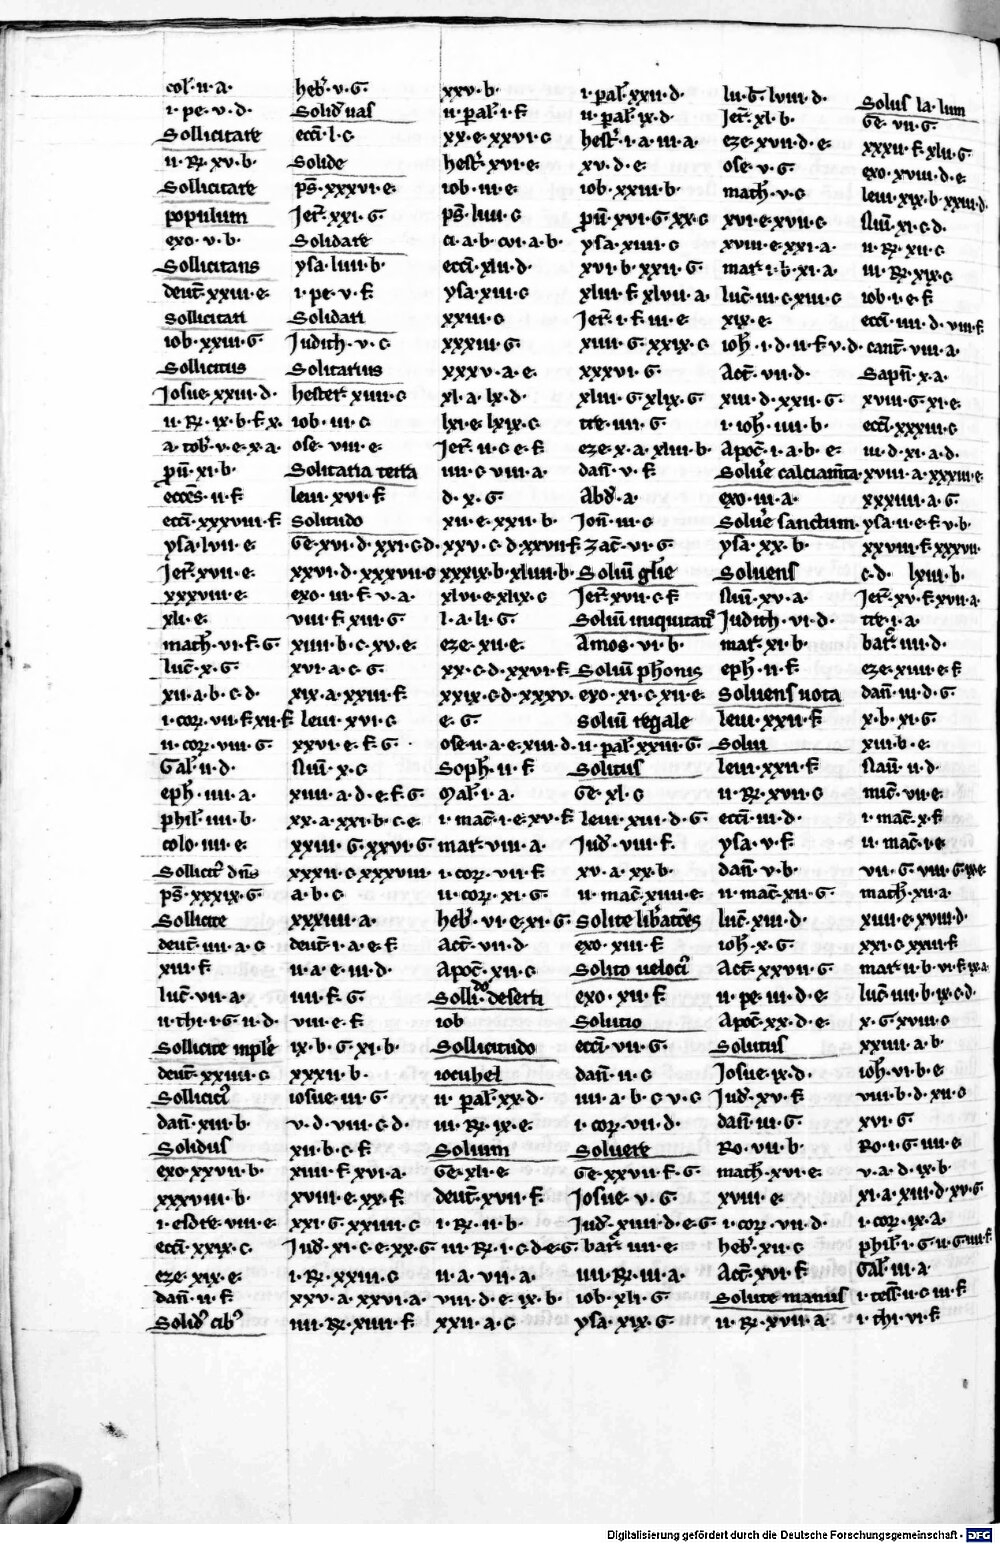 col᷑·ii·a·
i·pe·v·d·
Sollicitare
ii·R·xv·b·
Sollicitare
populum
exo·v·b·
Sollicitans
deut᷑·xxiii·e·
Sollicitari
iob·xxiii·G·
Sollicitus
Josue·xxiii·d·
ii·R·ix·b·f·x·
a·tob᷑·v·e·x·a·
p̱u᷑·xi·b·
ecces᷑·ii·f·
ecci᷑·xxxviii·f·
ysa·lvii·e·
Jer᷑·xvii·e·
xxxviii·e·
xli·e·
math᷑·vi·f·G·
luc᷑·x·G·
xii·a·b·c·d·
i·cor᷑·vii·f·xii·f·
ii·cor᷑·viii·G·
Gal᷑·ii·d·
eph᷑·iiii·a·
phil᷑·iiii·b·
colo·iiii·e·
Sollicit᷑ dn᷑s
ps᷑·xxxix·G·
Sollicite
deut᷑·iiii·a·c
xiii·f·
luc᷑·vii·a·
ii·thi·i·G·ii·d·
Sollicite imple᷑
deut᷑·xxiiii·c
Sollicici᷑
dan᷑·xiii·b·
Solidus
exo·xxvii·b·
xxxviii·b·
i·esdre·viii·e·
ecci᷑·xxix·c·
eze·xix·e·
dan᷑·ii·f·
Solid᷑ cib᷑
heb᷑·v·G·
Solid᷑ uas
ecci᷑·l·c
Solide
ps᷑·xxxvi·e·
Jer᷑·xxi·G·
Solidare
ysa·liiii·b·
i·pe·v·f·
Solidari
Judith·v·c·
Solitarius
hester·xiiii·c
iob·iii·c
ose·viii·e·
Solitaria terra
leui·xvi·f·
Solitudo
Ge·xvi·d·xxi·c·d·
xxvi·d·xxxvii·c
exo·iii·f·v·a·
viii·f·xiii·G·
xiiii·b·c·xv·e·
xvi·a·c·G·
xix·a·xxiii·f·
leui·xvi·c
xxvi·e·f·G·
nu᷑·x·c
xiiii·a·d·e·f·G·
xx·a·xxi·b·c·e·
xxiii·G·xxvi·G
xxxii·c·xxxviii·
a·b·c
xxxiiii·a·
deut᷑·i·a·e·f·
ii·a·e·iii·d·
iiii·f·G·
viii·e·f·
ix·b·G·xi·b·
xxxii·b·
iosue·iii·G·
v·d·viii·c·d·
xii·b·c·f·
xiiii·f·xvi·a·
xviii·e·xx·f·
xxi·G·xxiiii·c
Jud᷑·xi·c·e·xx·G
i·R·xxiii·c
xxv·a·xxvi·a·
iiii·R·xiiii·f·
xxv·b·
ii·paral᷑·i·f·
xx·e·xxvi·c
hest᷑·xvi·e·
iob·iii·e·
ps᷑·liiii·c
ci·a·b·cvi·a·b·
ecci᷑·xlii·d·
ysa·xiii·c
xxiii·c
xxxiii·G·
xxxv·a·e·
xl·a·lx·d·
lxi·e·lxix·c
Jer᷑·ii·c·e·f·
iiii·c·viii·a·
d·x·G·
xii·e·xxii·b·
xxv·c·d·xxvii·f·
xxxix·b·xliiii·b·
xlvi·e·xlix·c
l·a·li·G·
eze·xii·e·
xx·c·d·xxvi·f·
xxix·c·d·xxxv·
e·G·
ose·ii·a·e·xiii·d·
Soph᷑·ii·f·
Mal᷑·i·a·
i·mac᷑·i·e·xv·f·
mar·viii·a·
i·cor᷑·vii·f·
ii·cor᷑·xi·G·
heb᷑·vi·e·xi·G·
Act᷑·vii·d·
Apoc᷑·xii·c
Solli·do deserti
iob
Sollicitudo
iocuhel
ii·paral᷑·xx·d·
iii·R·ix·e·
Solium
Ge·xli·e·
deut᷑·xvii·f·
i·R·ii·b·
iii·R·i·c·d·e·G·
ii·a·vii·a·
viii·d·e·ix·b·
xxii·a·c
i·paral᷑·xxii·d·
ii·paral᷑·ix·d·
hest᷑·i·a·iii·a·
xv·d·e·
iob·xxiii·b·
p̱u᷑·xvi·G·xx·c
ysa·xiiii·c
xvi·b·xxii·G·
xliii·f·xlvii·a·
Jer᷑·i·f·iii·e·
xiii·G·xxix·c
xxxvi·G·
xliii·G·xlix·G·
tre·iiii·G·
eze·x·a·xliii·b·
dan᷑·v·f·
Abd᷑·a·
Jon᷑·iii·c
Zac᷑·vi·G·
Soliu᷑ glie᷑
Jer᷑·xvii·c·f·
Soliu᷑ iniquitat᷑
Amos·vi·b·
Soliu᷑ phonis
exo·xi·c·xii·e·
Soliu᷑ regale
ii·paral᷑·xxiii·G·
Solitus
Ge·xl·c
leui·xiii·d·G·
Jud᷑·viii·f·
xv·a·xx·b·
ii·mac᷑·xiiii·e·
Solite lib᷑at᷑oes
exo·xiii·f·
Solito ueloci᷑
exo·xii·f·
Solutio
ecci᷑·vii·G·
dan᷑·ii·c
iiii·a·b·c·v·c
i·cor᷑·vii·d·
Soluere
Ge·xxvii·f·G·
Josue·v·G·
Jud᷑·xiiii·d·e·G·
bar᷑·iiii·e·
iiii·R·iii·a·
iob·xli·G·
ysa·xix·G·
lu·G·lviii·d·
Jer᷑·xl·b·
eze·xvii·d·e·
ose·v·G·
math᷑·v·c
xvi·e·xvii·c
xviii·e·xxi·a·
mar᷑·i·b·xi·a·
luc᷑·iii·c·xiii·c
xix·e·
ioh᷑·i·d·ii·f·v·d·
Act᷑·vii·d·
xiii·d·xxii·G·
i·ioh᷑·iiii·b·
Apoc᷑·i·a·b·e·
Solue᷑ calciam᷑ta·
exo·iii·a·
Solue᷑ sanctum·
ysa·xx·b·
Soluens
nu᷑·xv·a·
Judith·vi·d·
mat᷑·xi·b·
eph᷑·ii·f·
Soluens uota
leui·xxii·f·
Solui
leui·xxii·f·
ii·R·xvii·c
ecci᷑·iii·d·
ysa·v·f·
dan᷑·v·b·
ii·mac᷑·xii·G·
luc᷑·xiii·d·
ioh᷑·x·G·
Act᷑·xxvii·G·
ii·pe·iii·d·e·
Apoc᷑·xx·d·e·
Solutus
Josue·ix·d·
Jud᷑·xv·f·
dan᷑·iii·G·
Ro·vii·b·
math᷑·xvi·e·
xviii·e·
i·cor᷑·vii·d·
heb᷑·xii·c
Act᷑·xvi·f·
Solute manus
ii·R·xvii·a·
Solus la·lum
Ge·vii·G·
xxxii·f·xlii·G
exo·xviii·d·e·
leui·xix·b·xxiii·d·
nu᷑·xi·c·d·
ii·R·xii·c
iii·R·xix·c
iob·i·e·f·
ecci᷑·iiii·d·viii·f·
cant᷑·viii·a·
Sapn᷑·x·a·
xviii·G·xi·e·
ecci᷑·xxxiii·c
iii·d·xi·a·d·
xviii·a·xxxiii·e·
xxxiiii·a·G·
ysa·ii·e·f·v·b·
xxviii·f·xxxvii·
c·d· lxiii·b·
Jer᷑·xv·f·xvii·a·
tre·i·a·
bar᷑·iiii·d·
eze·xiiii·e·f·
dan᷑·iii·d·G·
x·b·xi·G·
xiii·b·e·
Nau᷑·ii·d·
mic᷑·vii·e·
i·mac᷑·x·f·
ii·mac᷑·i·e
vii·G·viii·G·
math᷑·xii·a·
xiiii·e·xviii·d·
xxi·c·xxiii·f·
mar᷑·ii·b·vi·f·ix·a·
luc᷑·iiii·b·ix·c·d·
x·G·xviii·c
xxiiii·a·b·
ioh᷑·vi·b·e·
viii·b·d·xii·c
xvi·G·
Ro·i·G·iiii·e·
v·a·d·ix·b·
xi·a·xiii·d·xv·G·
i·cor᷑·ix·a·
phil᷑·i·G·ii·G·iiii·f·
Gal᷑·iii·a·
i·tess᷑·ii·c·iii·f·
i·thi·vi·f·
Digitalisierung gefördert durch die Deutsche Forschungsgemeinschaft - DFG